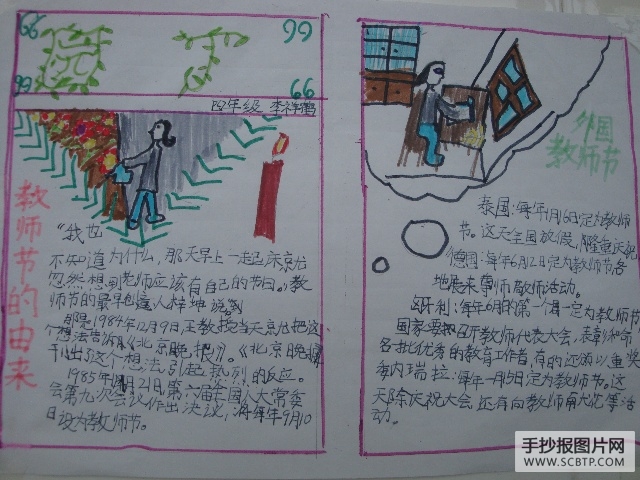 66
99
99
66
四年级 李祥鹤
教师节的由来
"我也
不知道为什么,那天早上一起床京尤
忽然想到老师应该有自己的节日。"教
师节的最早创建人梓坤说到
那是1984年12月9日,王教授当天京尤把这
个想法告诉《北京晚报》。《北京晚报
刊出了这个想法引起热烈的反应。
1985年1月21日第六届全国人大常委
会第九次会议作出决议,将每年9月10
日设为教师节。
外国
教师节
泰国:每年1月16日定为教师
节。这天全国放假,隆重庆祝
德国:每年6月12日定为教师节各
地展来尊师敬师活动。
匈牙利:每年6月的第一个星一定为教师节
国家要召开教师代表大会,表彰和命
名批优秀的教育工作者,有的还添以重奖
委内瑞拉:每年一月15日定为教师节。这
天除庆祝大会,还有向教师献花等活
动。
手抄报图片网
WWW.SCBTP.COM